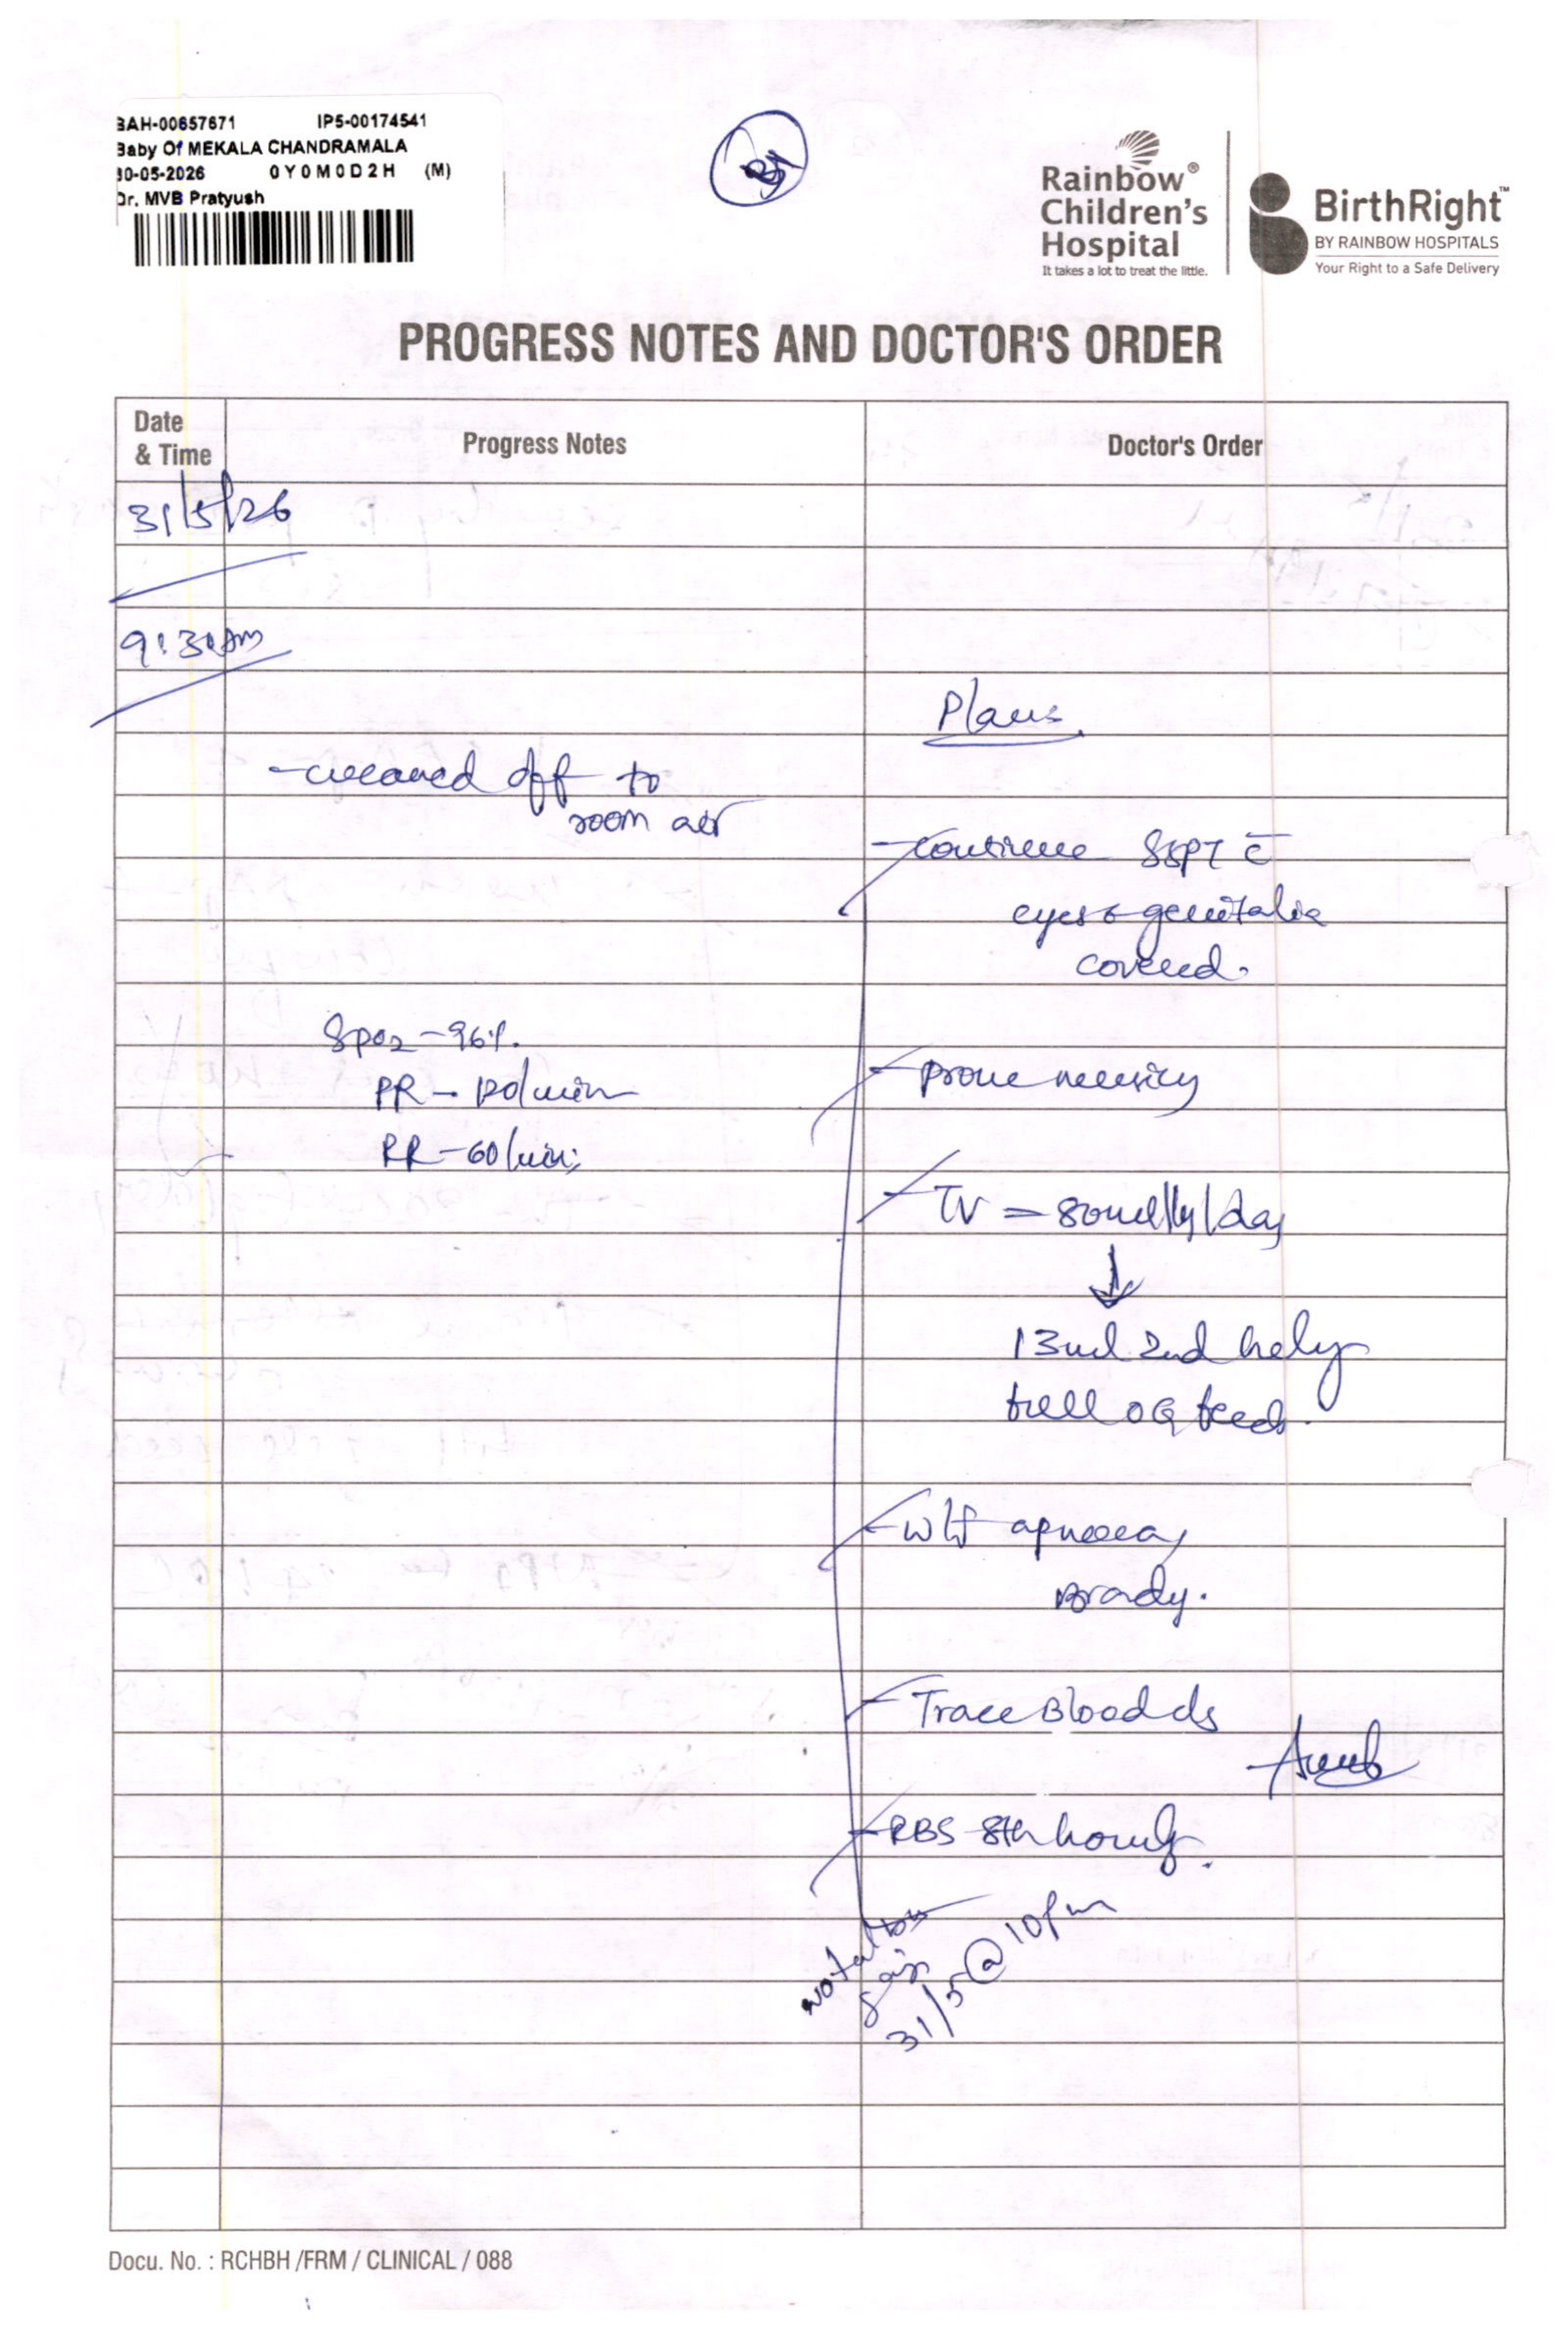 BAH-00657671 IP5-00174541
Baby Of MEKALA CHANDRAMALA
30-05-2026 0Y0M0D2H (M)
Dr. MVB Pratyush
Rainbow®
Children's
Hospital
It takes a lot to treat the little.
BirthRight™
BY RAINBOW HOSPITALS
Your Right to a Safe Delivery
PROGRESS NOTES AND DOCTOR'S ORDER
Date
& Time
Progress Notes
Doctor's Order
31/5/26
9:30am
Plans
- weaned off to
room air
- continue SSPT c̄
eyes & genitalia
covered.
Spo2 - 96%.
PR - 120/min
RR - 60/min
- prone nursing
- TV = 80ml/kg/day
↓
13ml 2nd hrly
full OG feeds.
- w/f apnoea,
Brady.
- Trace Blood c/s
- RBS 8th hourly.
31/5 @ 10pm
Docu. No. : RCHBH /FRM / CLINICAL / 088